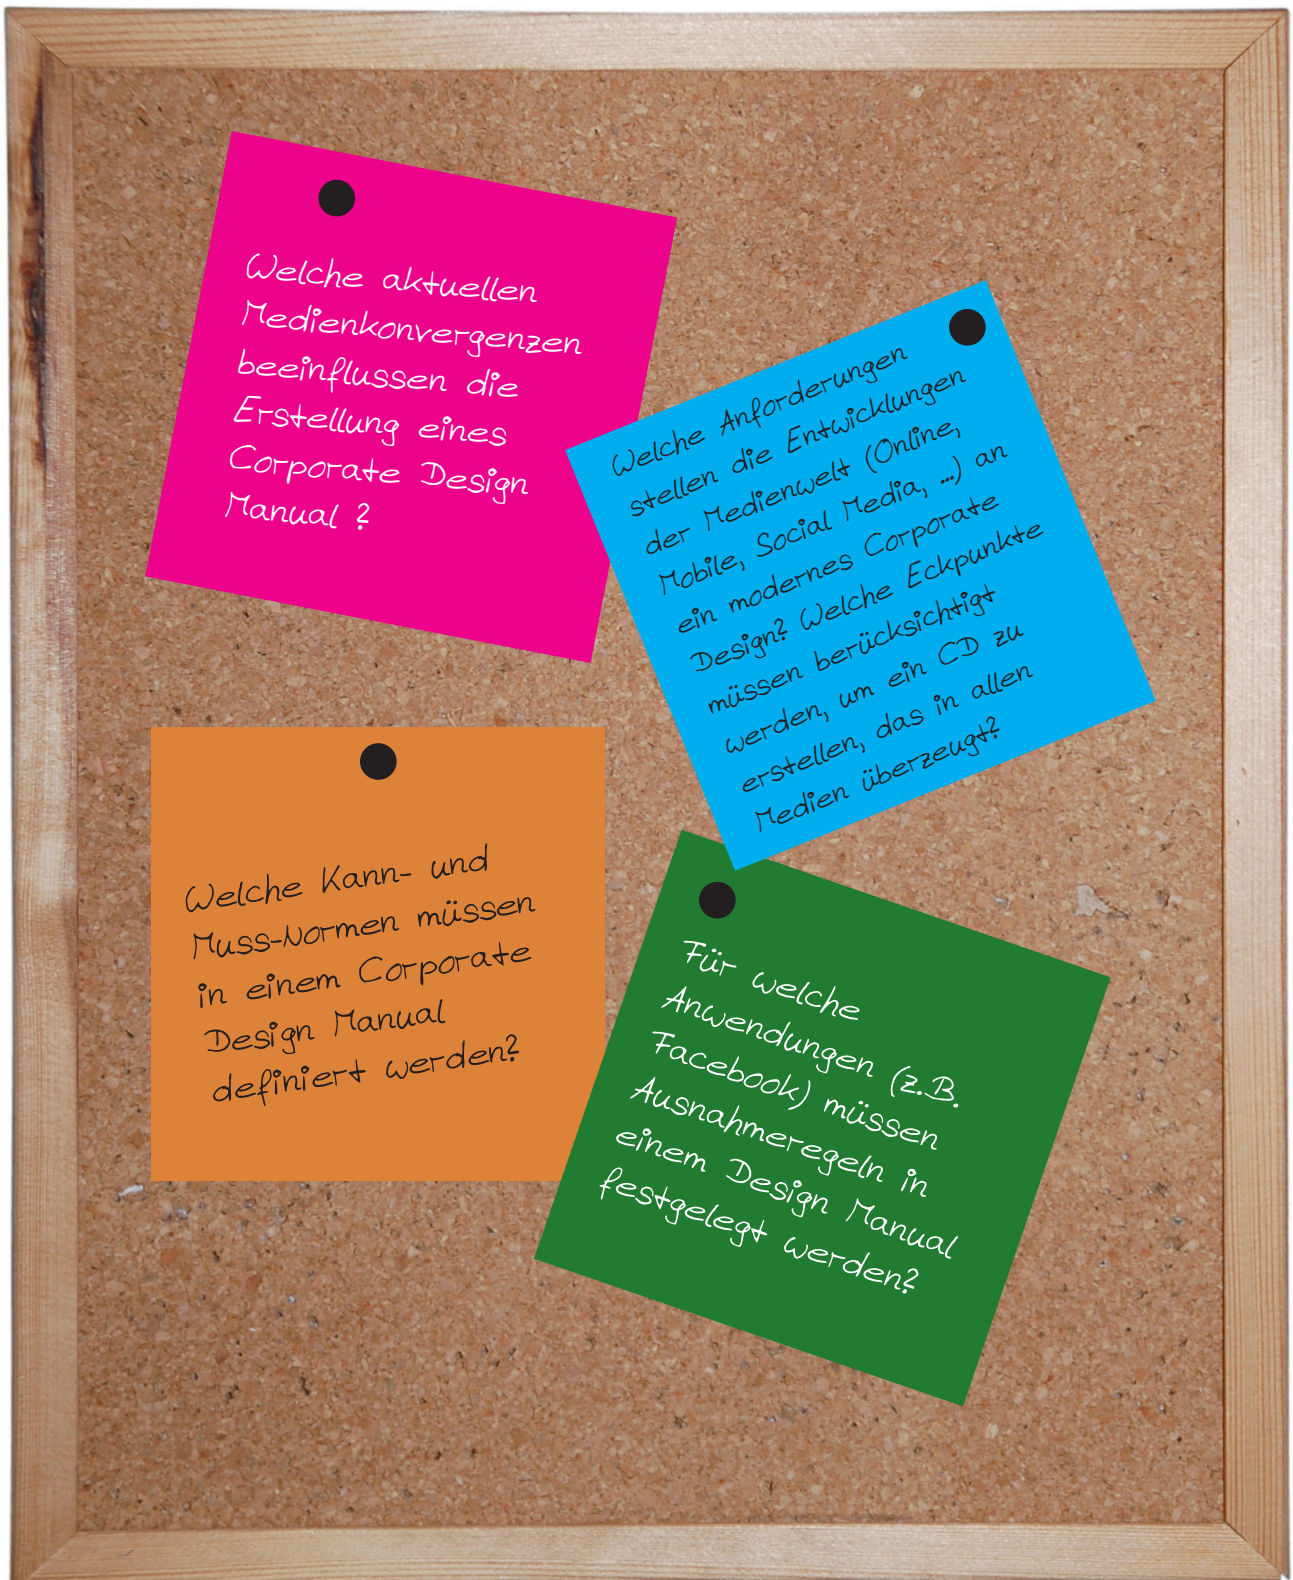 Welche aktuellen
Medienkonvergenzen
beeinflussen die
Erstellung eines
Corporate Design
Manual ?
Welche Anforderungen
stellen die Entwicklungen
der Medienwelt (Online,
Mobile, Social Media, ...) an
ein modernes Corporate
Design? Welche Eckpunkte
müssen berücksichtigt
werden, um ein CD zu
erstellen, das in allen
Medien überzeugt?
Welche Kann- und
Muss-Normen müssen
in einem Corporate
Design Manual
definiert werden?
Für welche
Anwendungen (z.B.
Facebook) müssen
Ausnahmeregeln in
einem Design Manual
festgelegt werden?